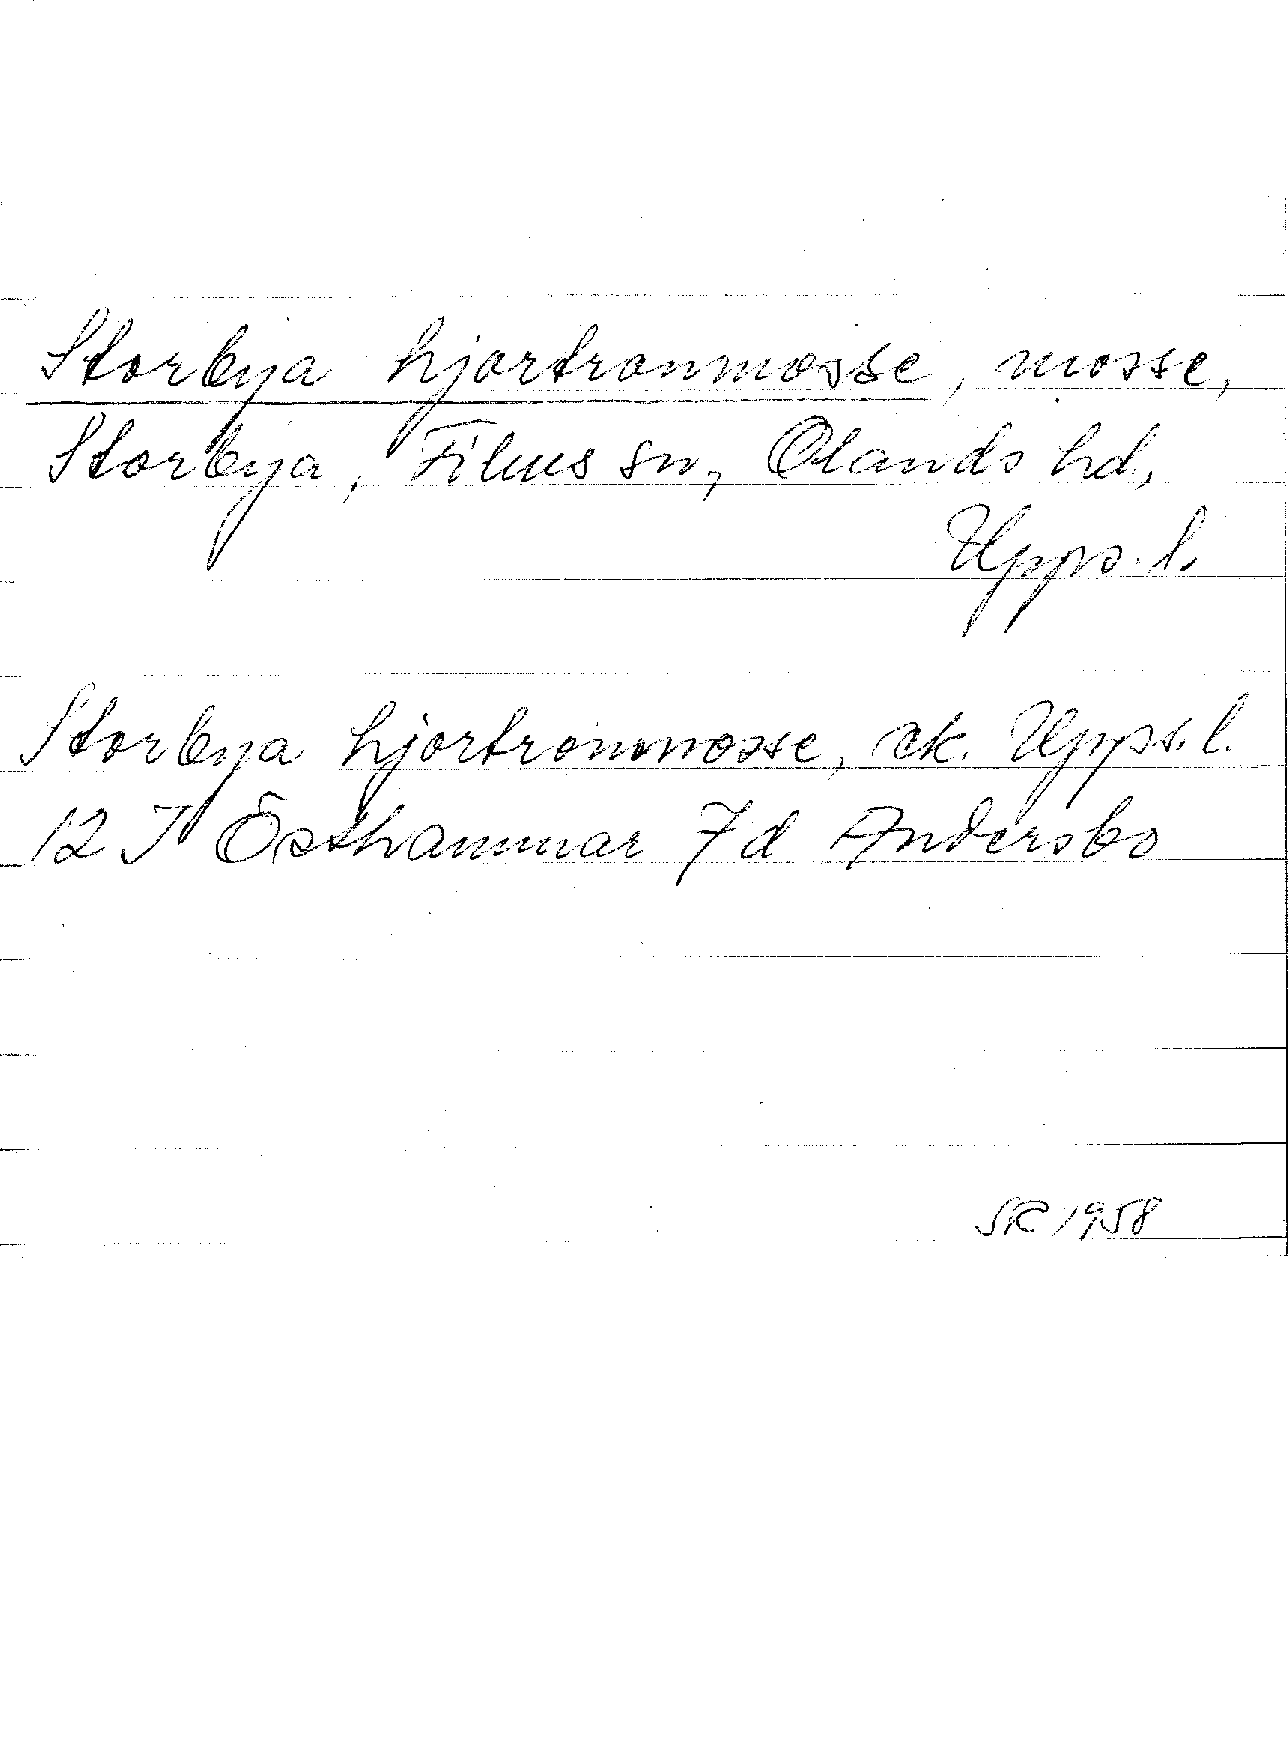 Storbya hjortronmosse, mosse,
Storbya, Films sn, Olands hd,
Upps. l.
Storbya hjortronmosse, ek. Upps. l.
12 I Östhammar 7d Andersbo
SR 1958